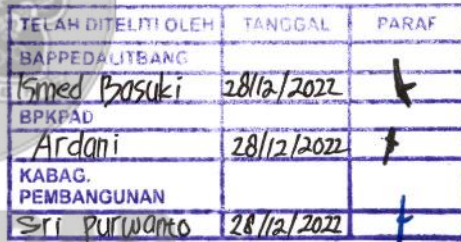 TELAH DITELITI OLEH TANGGAL PARAF
BAPPEDALITBANG
Ismed Basuki 28/12/2022
BPKPAD
Ardani 28/12/2022
KABAG.
PEMBANGUNAN
Sri purwanto 28/12/2022